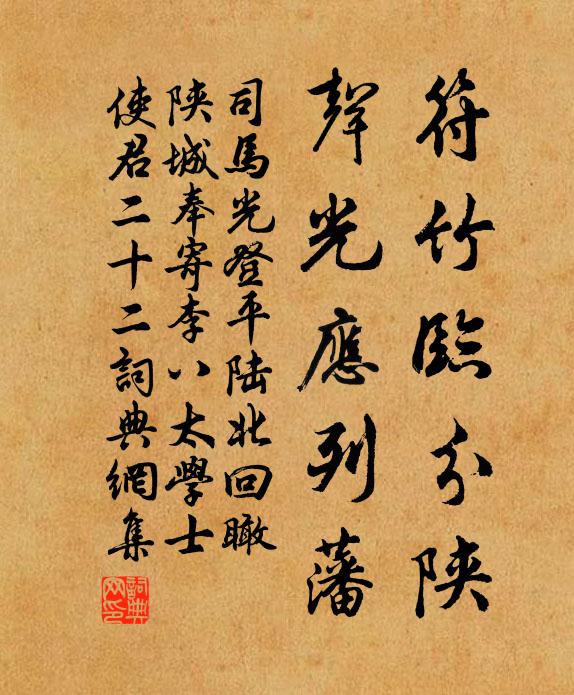 符竹臨分陝
聲光應列藩
司馬光登平陸北回瞰
陝城奉寄李八太學士
使君二十二詞典網集
詞典網印